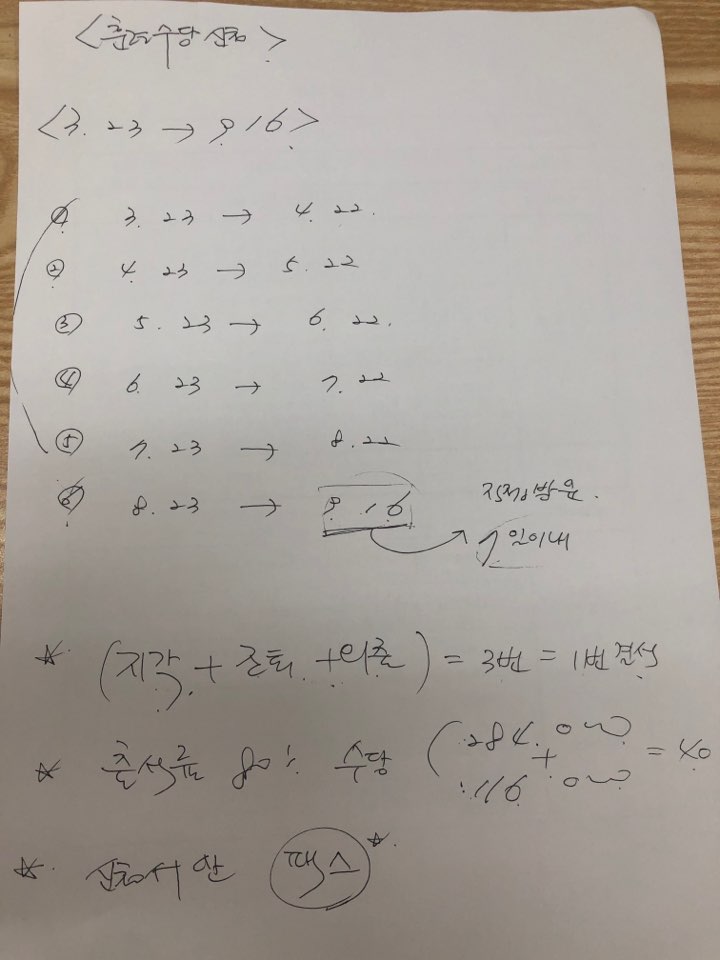 <훈련수당 신청>
<3. 23 → 9. 16>
① 3. 23 → 4. 22.
② 4. 23 → 5. 22
③ 5. 23 → 6. 22.
④ 6. 23 → 7. 22
⑤ 7. 23 → 8. 22
⑥ 8. 23 → 9. 16
7일이내
☆ (지각 + 조퇴 + 외출) = 3번 = 1번 결석
☆ 출석률 80% 수당 (284.000 + 116.000 = 40
☆ 신청서만 팩스 ☆